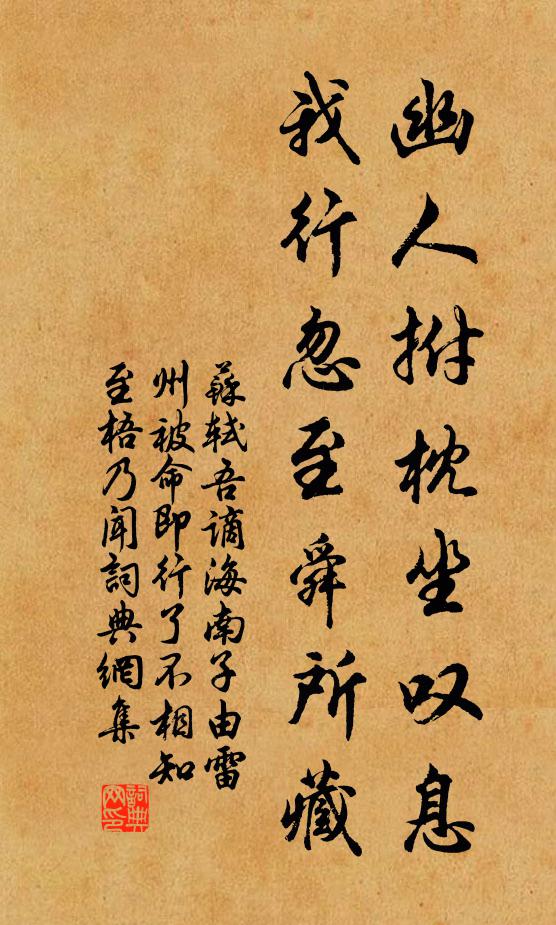 幽人拊枕坐叹息
我行忽至舜所藏
蘇軾吾謫海南子由雷
州被命即行了不相知
至梧乃聞詞典網集
詞典
网印